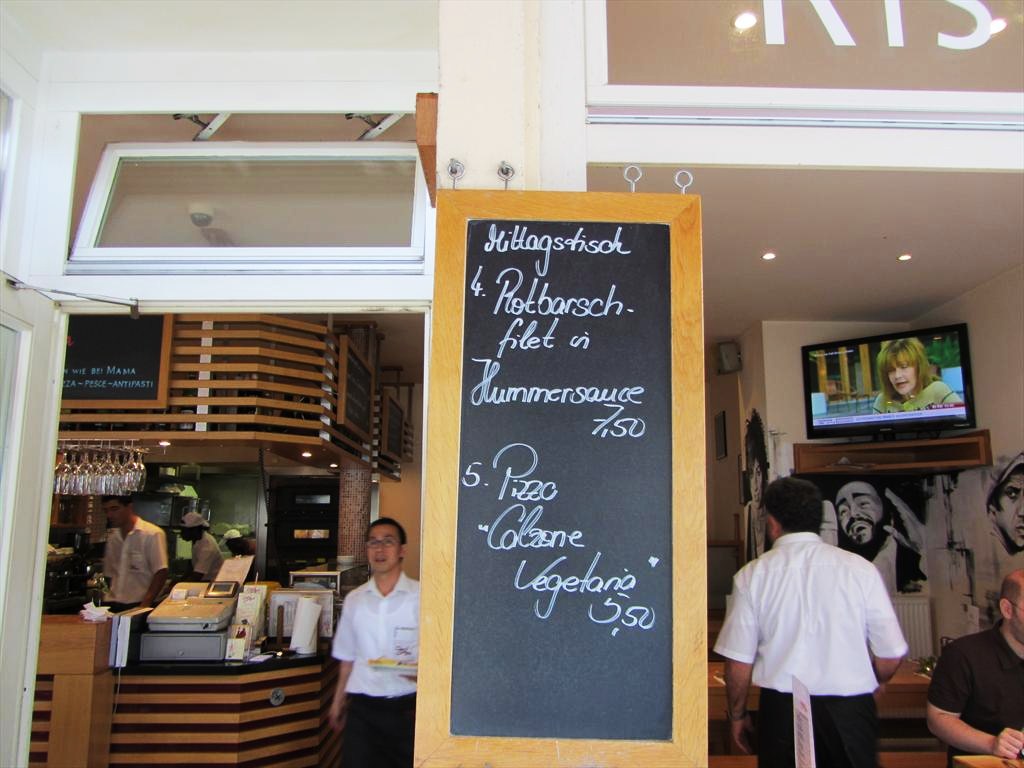 RIS
Mittagstisch
4. Rotbarsch-
filet in
Hummersauce
7,50
5. Pizza
"Calzone
Vegetaria"
5,50
N WIE BEI MAMA
ZZA-PESCE-ANTIPASTI